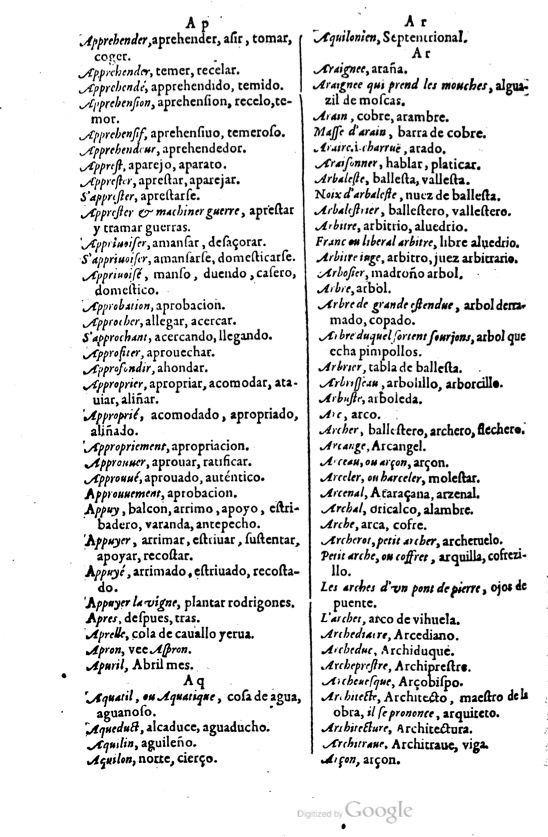 Ap
Apprehender, aprehender, asir, tomar,
coger.
Apprehender, temer, recelar.
Apprehendé, apprehendido, temido.
Apprehension, aprehension, recelo, te-
mor.
Apprehensif, aprehensiuo, temeroso.
Apprehendeur, aprehendedor.
Apprest, aparejo, aparato.
Apprester, aprestar, aparejar.
S'apprester, aprestarse.
Apprester & machiner guerre, aprestar
y tramar guerras.
Appriuoiser, amansar, desaçorar.
S'appriuoiser, amansarse, domesticarse.
Appriuoisé, manso, duendo, casero,
domestico.
Approbation, aprobacion.
Approcher, allegar, acercar.
S'approchant, acercando, llegando.
Approfiter, aprouechar.
Approfondir, ahondar.
Approprier, apropriar, acomodar, ata-
uiar, aliñar.
Approprié, acomodado, apropriado,
aliñado.
Appropriement, apropriacion.
Approuuer, aprouar, ratificar.
Approuué, aprouado, auténtico.
Approuuement, aprobacion.
Appuy, balcon, arrimo, apoyo, estri-
badero, varanda, antepecho.
Appuyer, arrimar, estriuar, sustentar,
apoyar, recostar.
Appuyé, arrimado, estriuado, recosta-
do.
Appuyer la vigne, plantar rodrigones.
Apres, despues, tras.
Aprelle, cola de cauallo yerua.
Apron, vee Aspron.
Apuril, Abril mes.
Aq
Aquatil, ou Aquatique, cosa de agua,
aguanoso.
Aqueduct, alcaduce, aguaducho.
Aquilin, aguileño.
Aquilon, norte, cierço.
Ar
Aquilonien, Septentrional.
Ar
Araignee, araña.
Araignee qui prend les mouches, algua-
zil de moscas.
Arain, cobre, arambre.
Masse d'arain, barra de cobre.
Araire. i. charruë, arado.
Araisonner, hablar, platicar.
Arbaleste, ballesta, vallesta.
Noix d'arbaleste, nuez de ballesta.
Arbalestrier, ballestero, vallestero.
Arbitre, arbitrio, aluedrio.
Franc ou liberal arbitre, libre aluedrio.
Arbitre inge, arbitro, juez arbitrario.
Arbosier, madroño arbol.
Arbre, arbol.
Arbre de grande estendue, arbol derra-
mado, copado.
Arbre duquel sortent sourjons, arbol que
echa pimpollos.
Arbrier, tabla de ballesta.
Arbrisseau, arbolillo, arborcillo.
Arbuste, arboleda.
Arc, arco.
Archer, ballestero, archero, flechero.
Arcange, Arcangel.
Arceau, ou arçon, arçon.
Arceler, ou harceler, molestar.
Arcenal, Ataraçana, arzenal.
Archal, oricalco, alambre.
Arche, arca, cofre.
Archerot, petit archer, archeruelo.
Petit arche, ou coffret, arquilla, cofrezi-
llo.
Les arches d'vn pont de pierre, ojos de
puente.
L'archet, arco de vihuela.
Archediacre, Arcediano.
Archeduc, Archiduqué.
Archeprestre, Archiprestre.
Archeuesque, Arçobispo.
Architecte, Architecto, maestro de la
obra, il se prononce, arquiteto.
Architecture, Architectura.
Architraue, Architraue, viga.
Arçon, arçon.
Digitized by Google